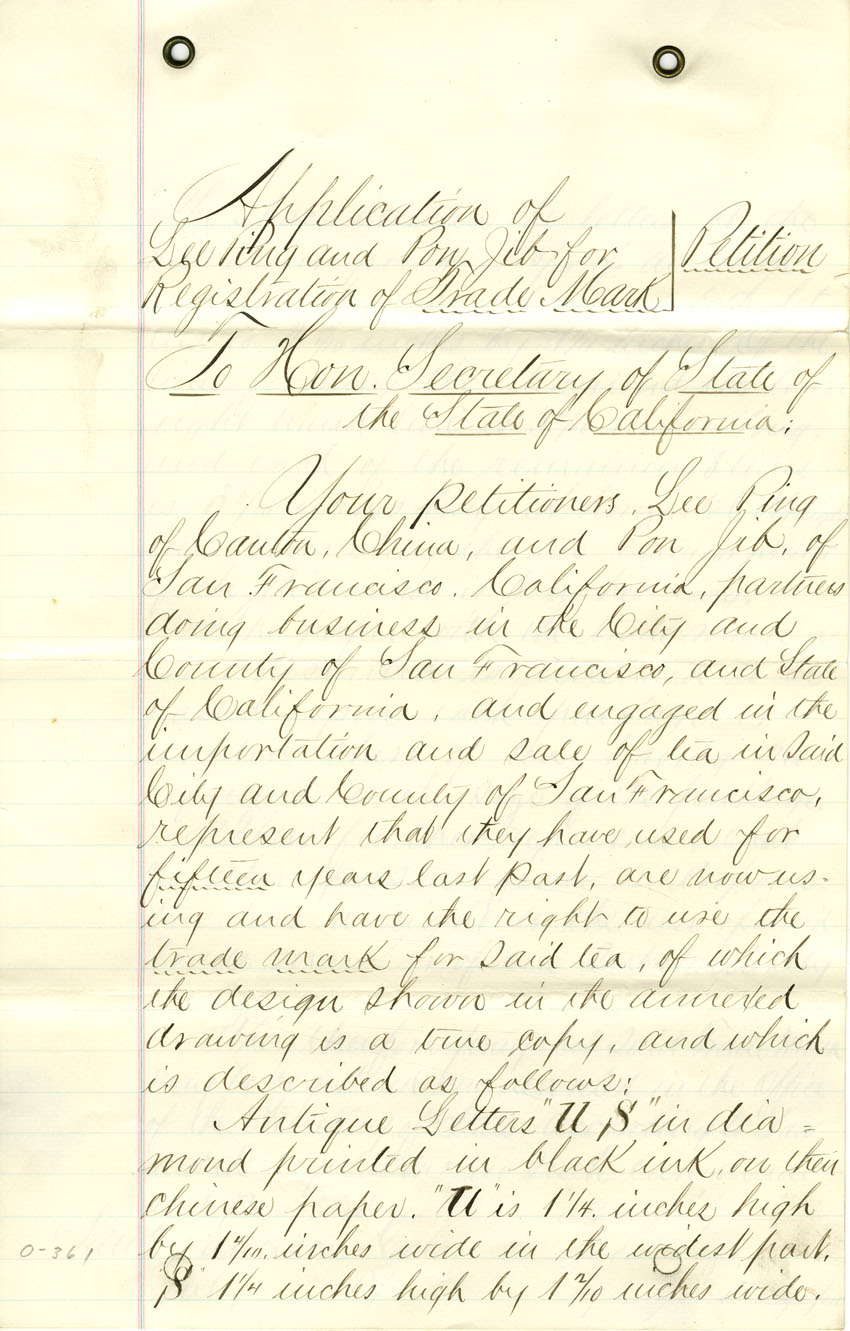 Application of
Lee Ping and Pon Jib for
Registration of Trade Mark
Petition
To Hon. Secretary of State of
the State of California:
Your petitioners, Lee Ping
of Canton, China, and Pon Jib, of
San Francisco, California, partners
doing business in the City and
County of San Francisco, and State
of California, and engaged in the
importation and sale of tea in said
City and County of San Francisco,
represent that they have used for
fifteen years last past, are now us-
ing and have the right to use the
trade mark for said tea, of which
the design shown in the annexed
drawing is a true copy, and which
is described as follows:
Antique Letters "U S" in dia=
mond printed in black ink, on thin
chinese paper. "U" is 1 1/4. inches high
by 1 2/10. inches wide in the widest part.
"S" 1 1/4 inches high by 1 2/10 inches wide.
0-361